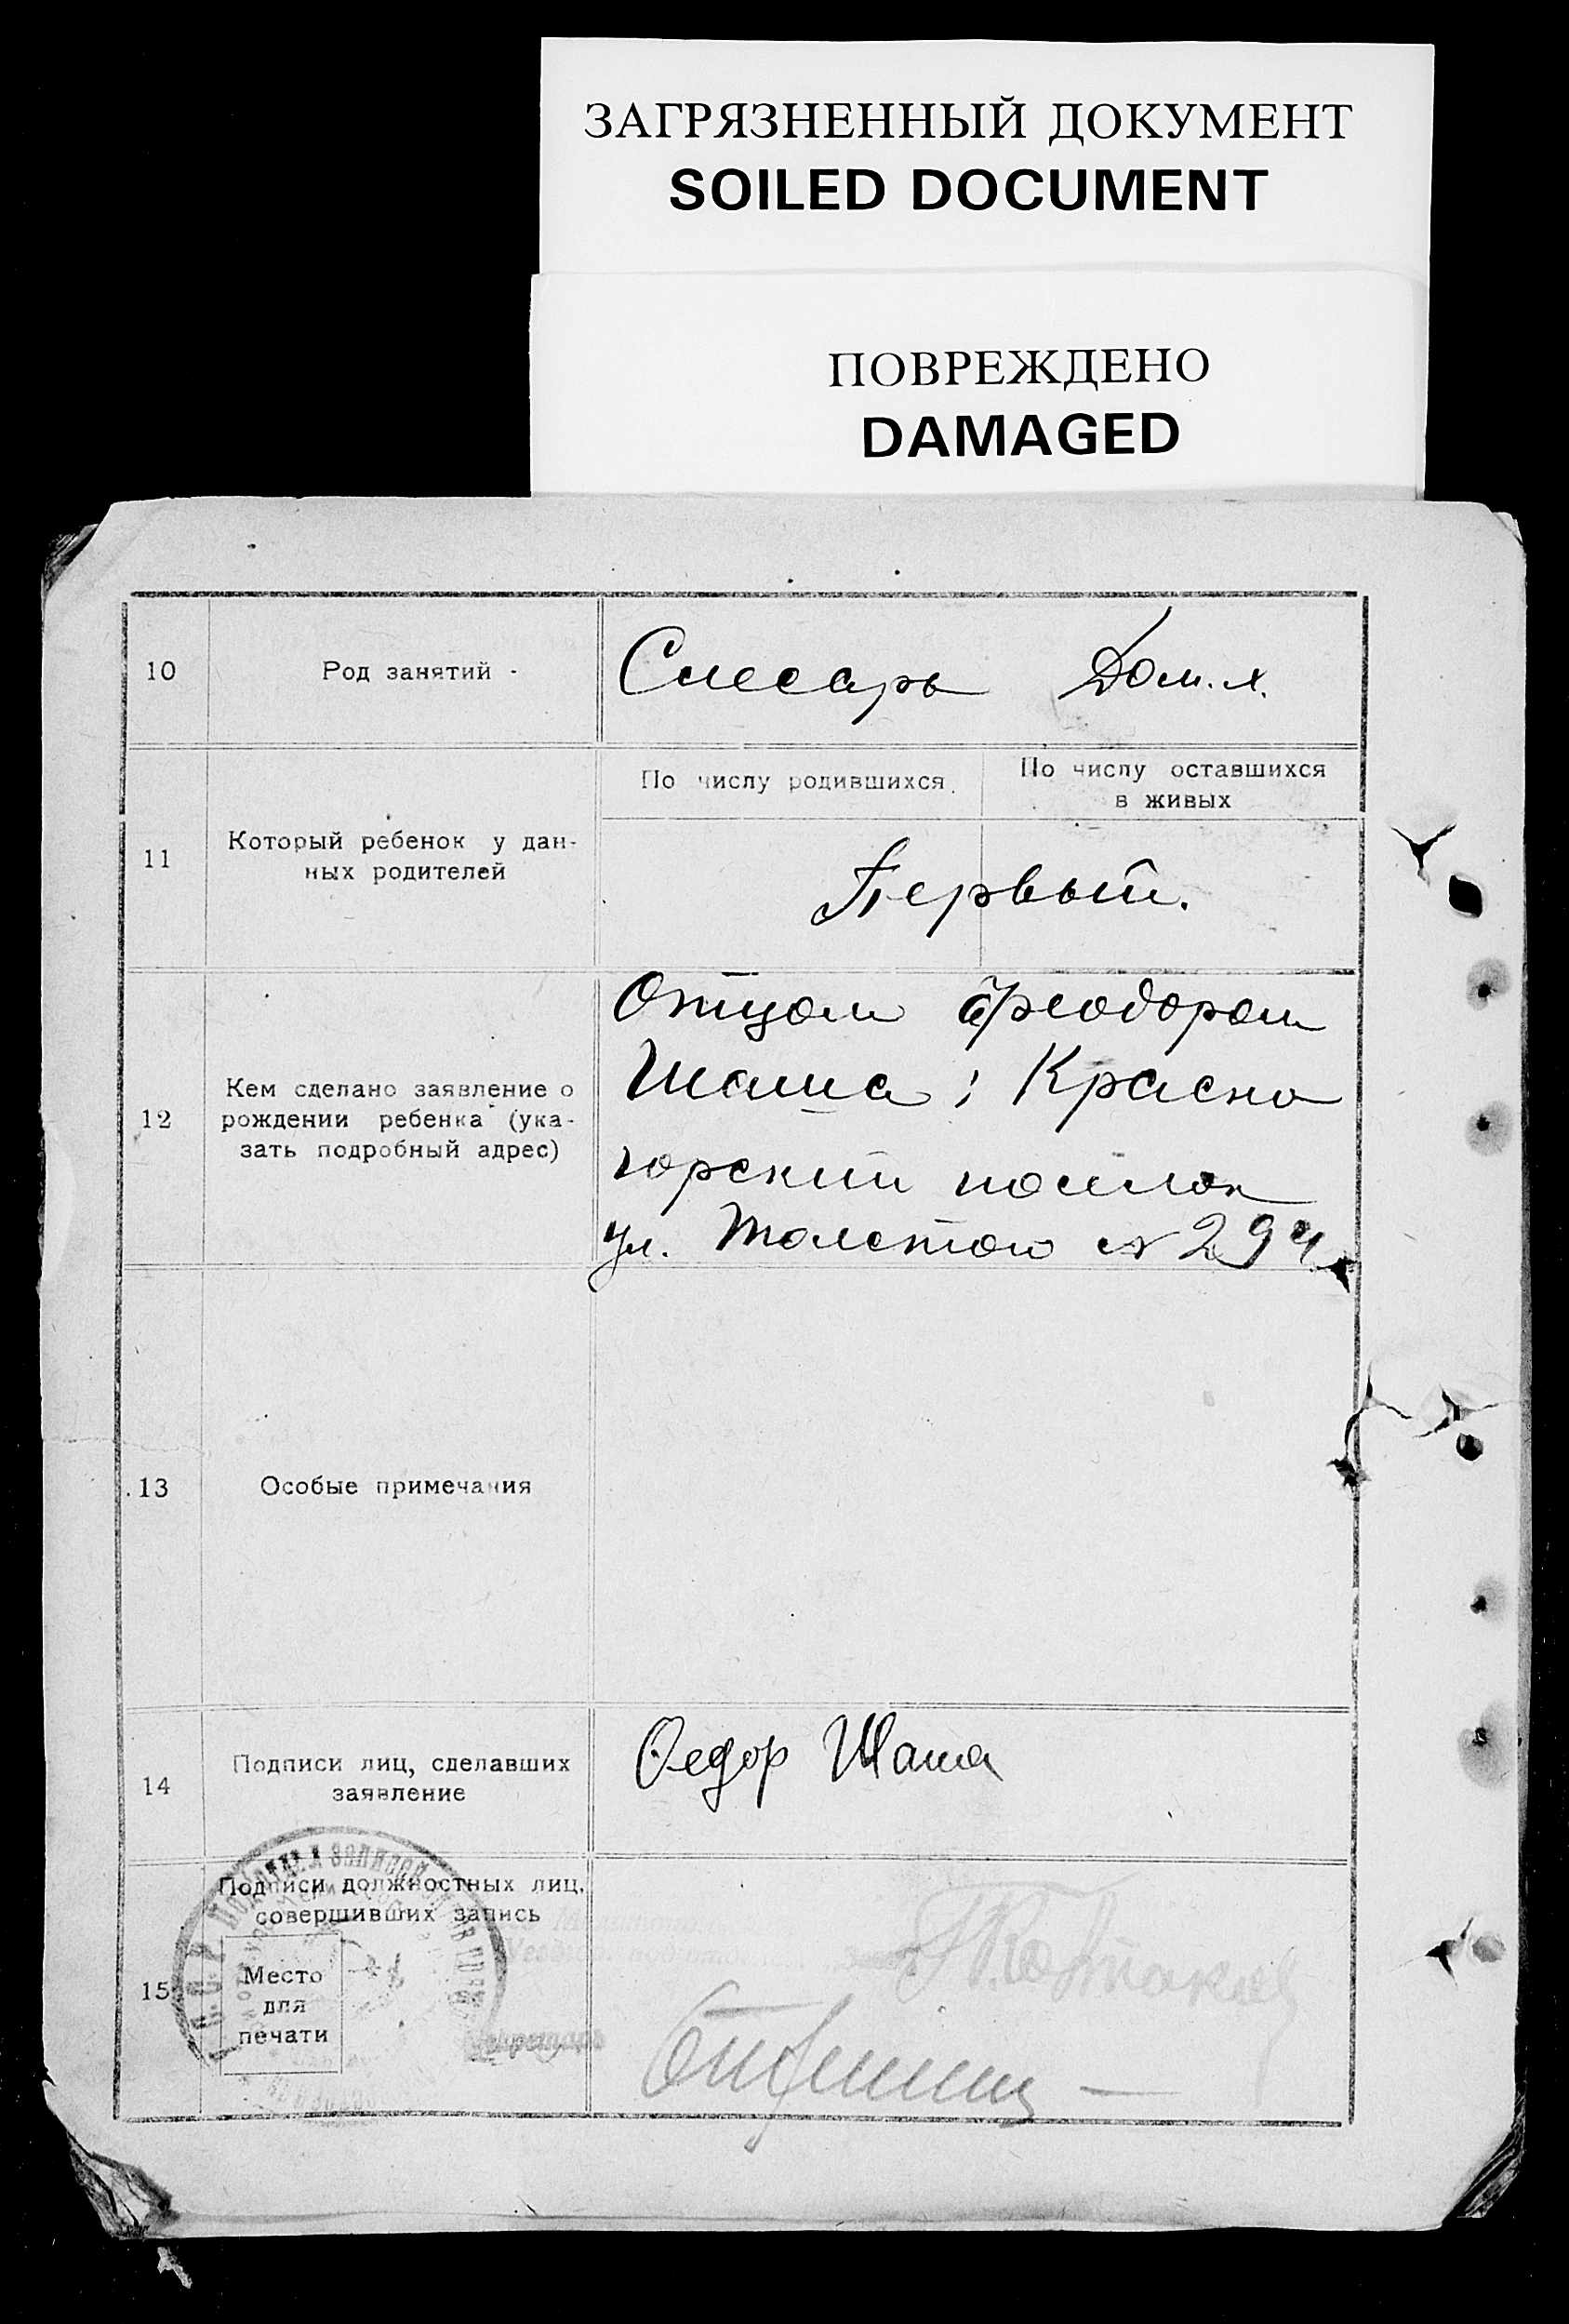 ЗАГРЯЗНЕННЫЙ ДОКУМЕНТ
SOILED DOCUMENT
ПОВРЕЖДЕНО
DAMAGED
10 Род занятий - Слесарь Дом. х.
11 Который ребенок у дан-
ных родителей
По числу родившихся По числу оставшихся
в живых
Первый.
12 Кем сделано заявление о
рождении ребенка (ука-
зать подробный адрес)
Отцом Феодором
Шаша; Красно
горский поселок
ул. Толстого № 294
13 Особые примечания
14 Подписи лиц, сделавших
заявление
Федор Шаша
15 Подписи должностных лиц,
совершивших запись
Место
для
печати
Секретарь